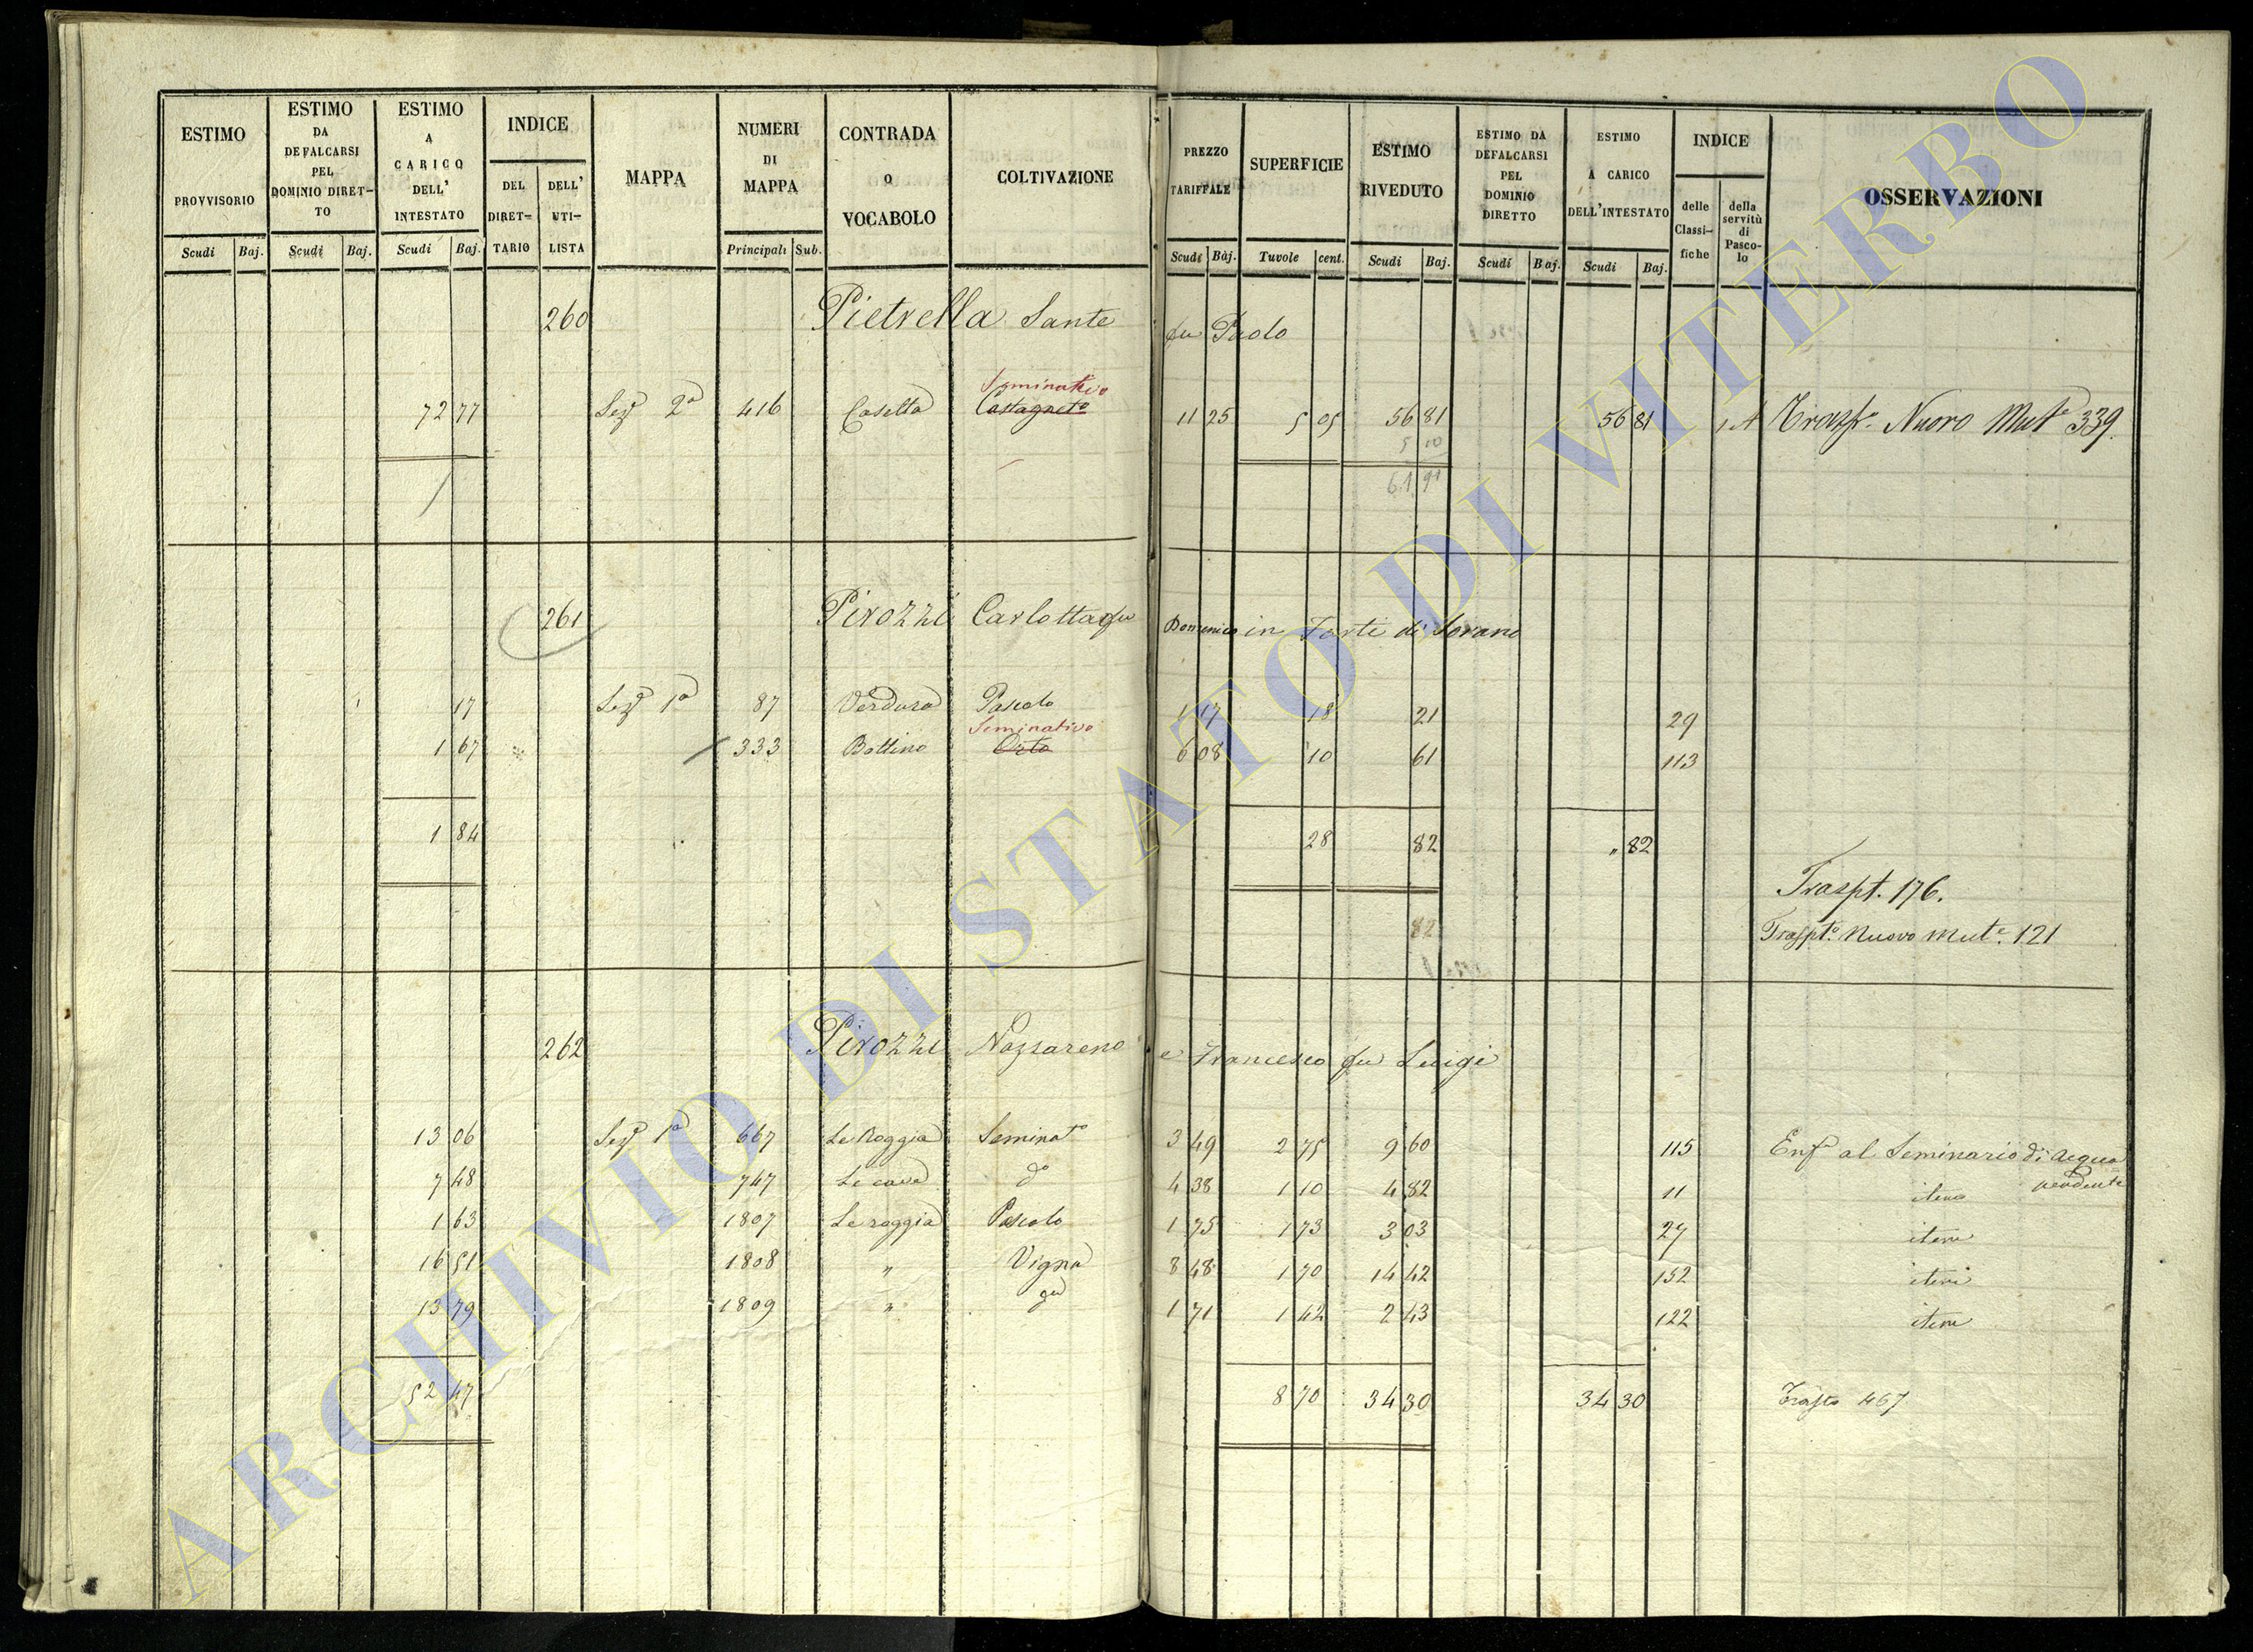 ESTIMO PROVVISORIO Scudi Baj.
ESTIMO DA DEFALCARSI PEL DOMINIO DIRET-TO Scudi Baj.
ESTIMO A CARICO DELL' INTESTATO Scudi Baj.
INDICE DEL DIRET-TARIO DELL' UTI-LISTA
MAPPA
NUMERI DI MAPPA Principali Sub.
CONTRADA O VOCABOLO
COLTIVAZIONE
PREZZO TARIFFALE Scudi Baj.
SUPERFICIE Tavole cent.
ESTIMO RIVEDUTO Scudi Baj.
ESTIMO DA DEFALCARSI PEL DOMINIO DIRETTO Scudi Baj.
ESTIMO A CARICO DELL'INTESTATO Scudi Baj.
INDICE delle Classi-fiche della servitù di Pasco-lo
OSSERVAZIONI
260 Pietrella Sante fu Paolo
Seminativo
72 77 Sezе 2a 416 Casetta Castagneto 11 25 5 05 56 81 56 81 Nuovo Mute 339.
5 10
61 91
261 Pirozzi Carlotta fu Domenico in Forti di Sorano
17 Seze 1a 87 Verdura Pascolo 1 17 18 21 29
Seminativo
1 67 333 Bottino Orto 6 08 10 61 113
1 84 28 82 " 82
Traspt. 176.
82 Trasptо Nuovo Mute. 121
262 Pirozzi Nazzareno e Francesco fu Luigi
13 06 Seze 1a 667 Le Roggia Seminato 3 49 2 75 9 60 115 Enfa al Seminario di Acqua
pendente
7 48 747 Le cava do 4 38 1 10 4 82 11 item
1 63 1807 Le roggia Pascolo 1 75 1 73 3 03 27 item
16 51 1808 " Vigna 8 48 1 70 14 42 152 item
13 79 1809 " 1 71 1 42 2 43 122 item
52 47 8 70 34 30 34 30 Traspto 467
ARCHIVIO DI STATO DI VITERBO